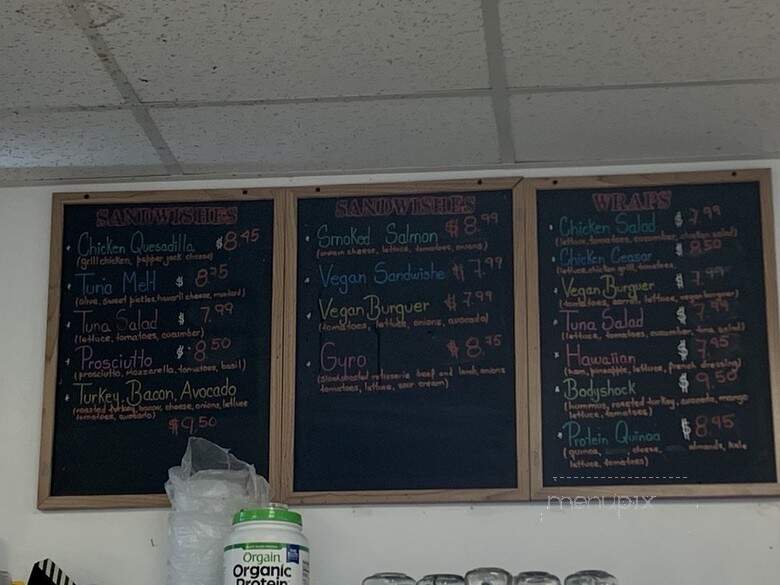 SANDWISHES
Chicken Quesadilla $8.45
(grill chicken, pepper jack cheese)
Tuna Melt $ 8.75
(olive, sweet pickles, havarti cheese, mustard)
Tuna Salad $ 7.99
(lettuce, tomatoes, cucumber)
Prosciutto $ 8.50
(prosciutto, mozzarella, tomatoes, basil)
Turkey, Bacon, Avocado
(roasted turkey, bacon, cheese, onions, lettuce
tomatoes, avocado)
$9.50
SANDWISHES
Smoked Salmon $ 8.99
(cream cheese, lettuce, tomatoes, onions)
Vegan Sandwishe $ 7.99
Vegan Burguer $ 7.99
(tomatoes, lettuce, onions, avocado)
Gyro $ 8.75
rotisserie beef and lamb, onions
tomatoes, lettuce, sour cream)
WRAPS
Chicken Salad $ 7.99
(lettuce, tomatoes, cucumber, chicken salad)
Chicken Ceasar $ 8.50
(lettuce, chicken grill, tomatoes,
Vegan Burguer $ 7.99
(tomatoes, carrots, lettuce, vegan burguer)
Tuna Salad $ 7.99
(lettuce, tomatoes, cucumber, tuna salad)
Hawaiian $ 7.95
(ham, pineapple, lettuce, french dressing)
Bodyshock $ 9.50
(hummus, roasted turkey, avocado, mango
lettuce, tomatoes)
Protein Quinoa $ 8.45
(quinoa, cheese, almonds, kale
lettuce, tomatoes)
menupix
Orgain
Organic
Protein